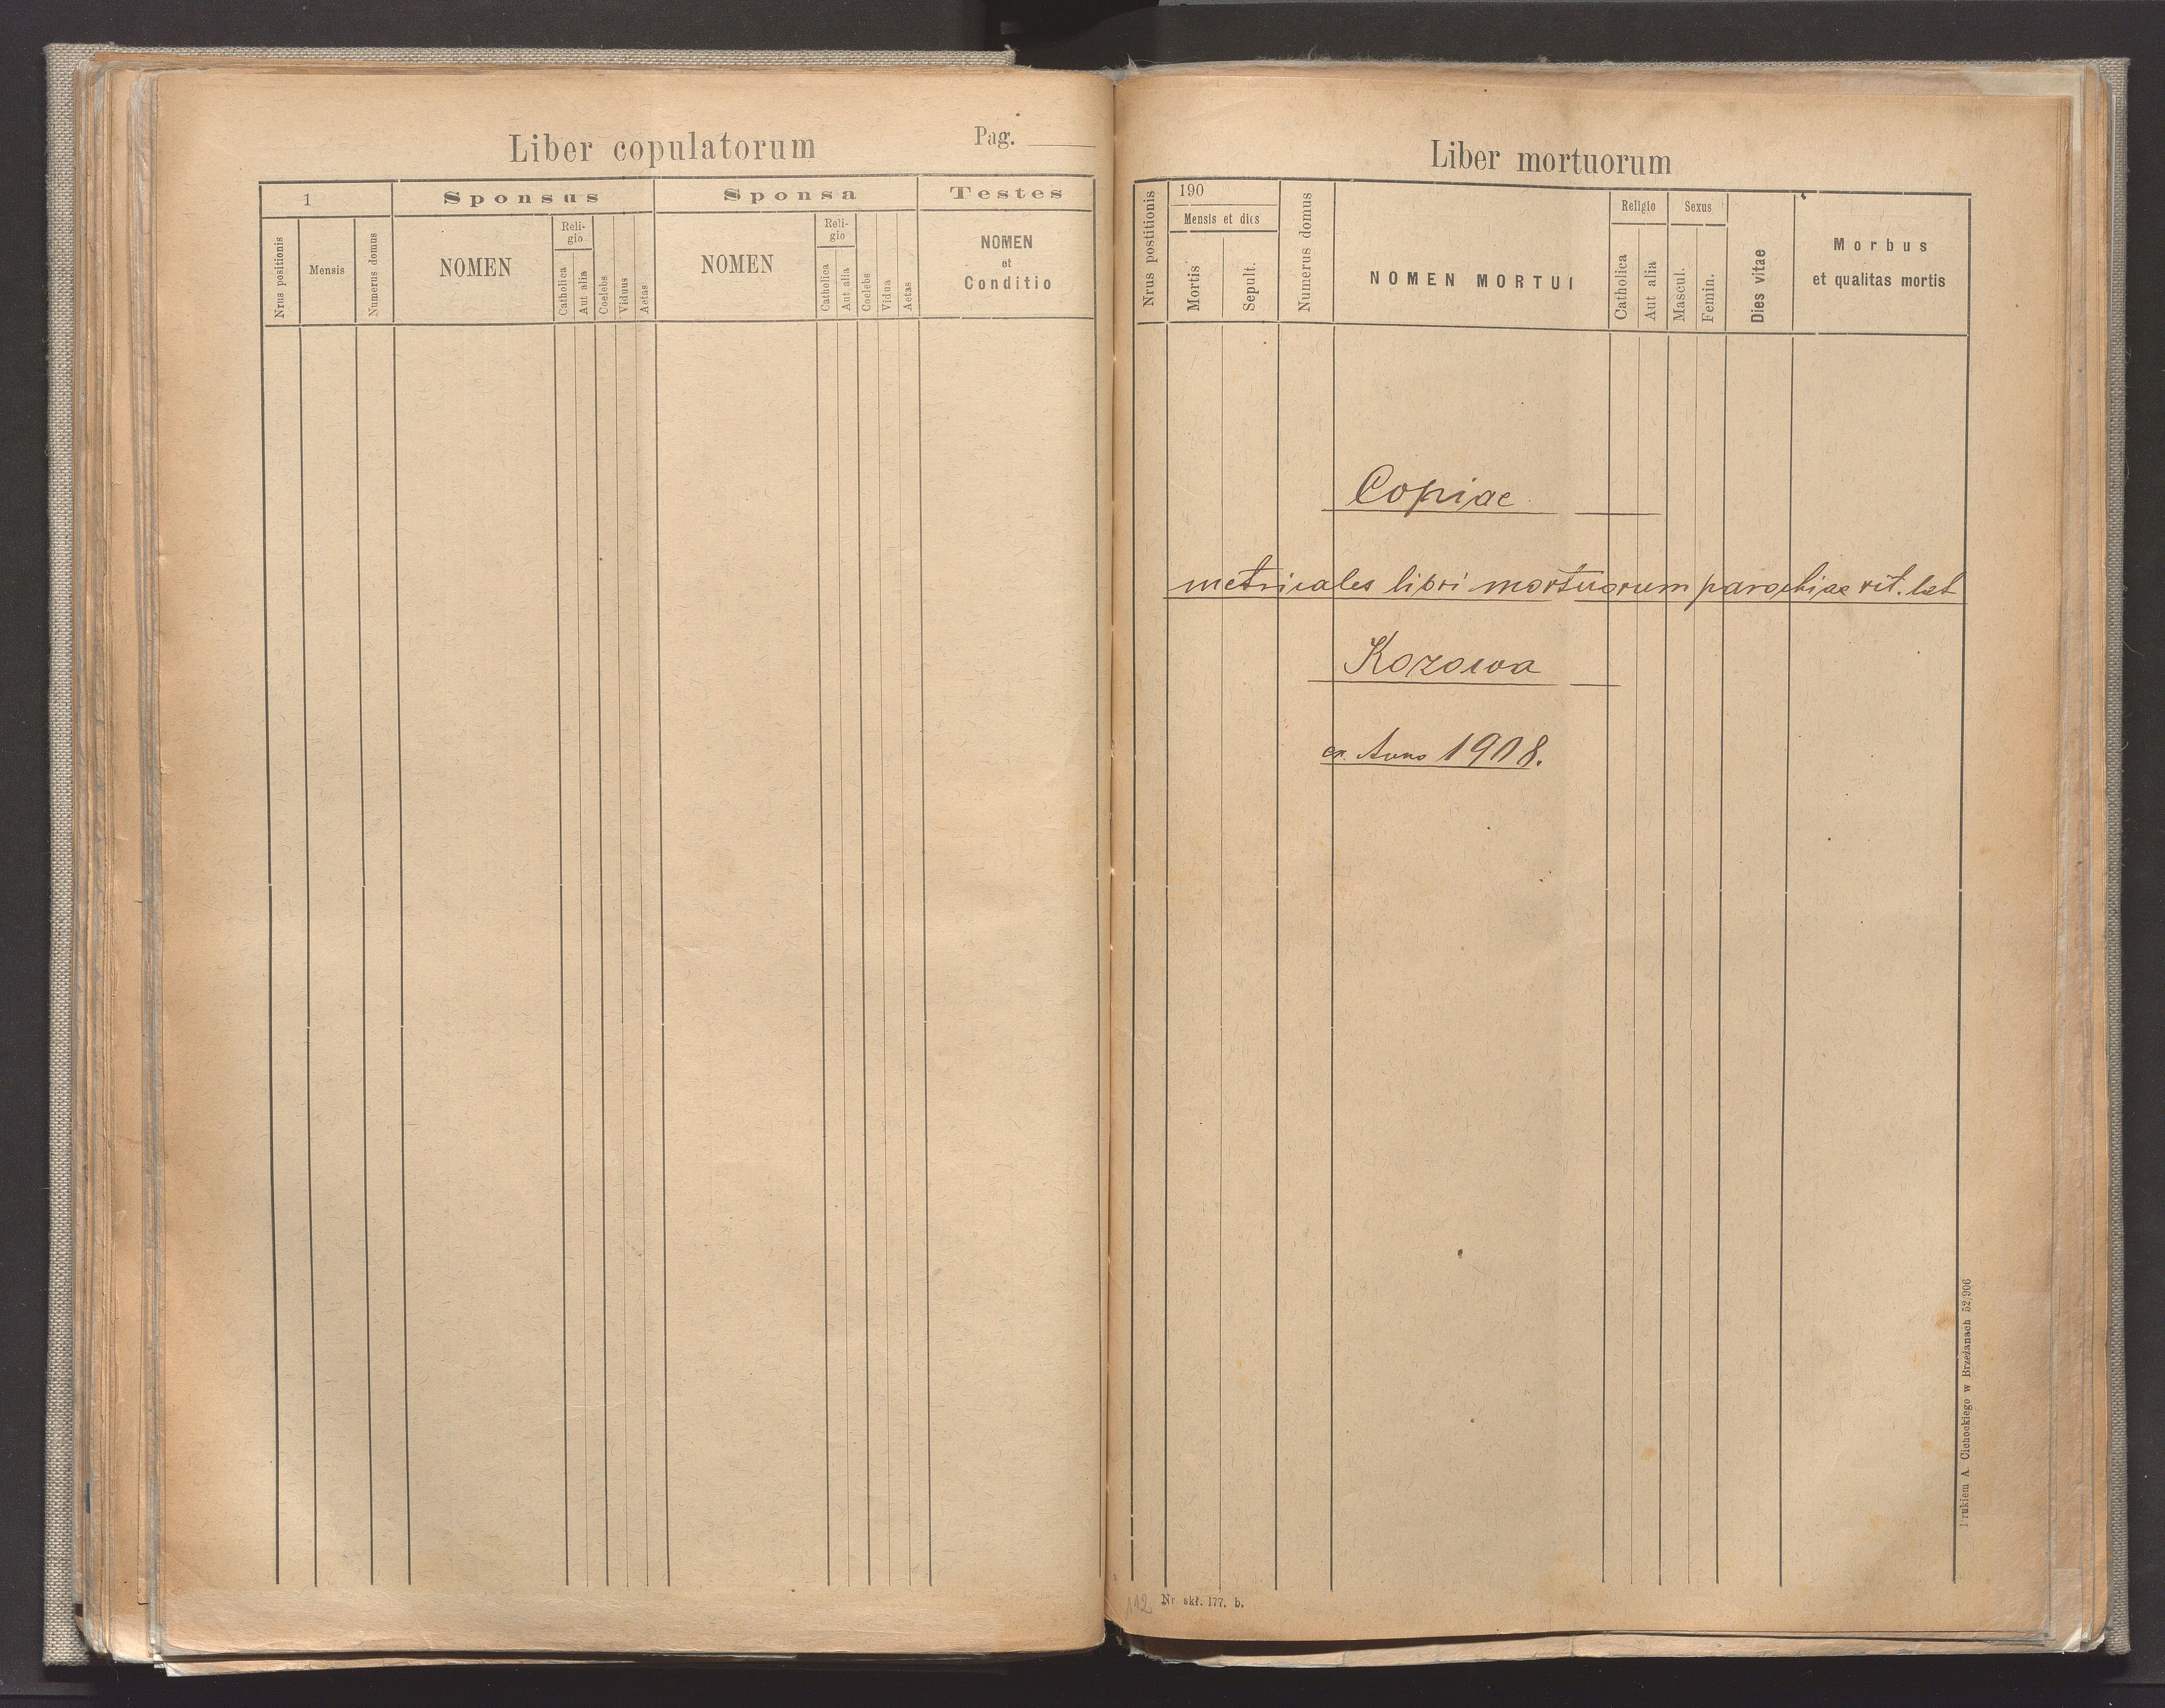 Liber copulatorum
Pag.
1
Sponsus
Sponsa
Testes
Nrus positionis
Mensis
Numerus domus
NOMEN
Reli-
gio
Catholica
Aut alia
Coelebs
Viduus
Aetas
NOMEN
Reli-
gio
Catholica
Aut alia
Coelebs
Vidua
Aetas
NOMEN
et
Conditio
Liber mortuorum
Nrus postitionis
190
Mensis et dies
Mortis
Sepult.
Numerus domus
NOMEN MORTUI
Religio
Catholica
Aut alia
Sexus
Mascul.
Femin.
Dies vitae
Morbus
et qualitas mortis
Copiae
metricales libri mortuorum parochiae rit. lat
Kozowa
ex Anno 1908.
Drukiem A. Cichockiego w Brzeżanach 52,906
112
Nr. skł. 177. b.